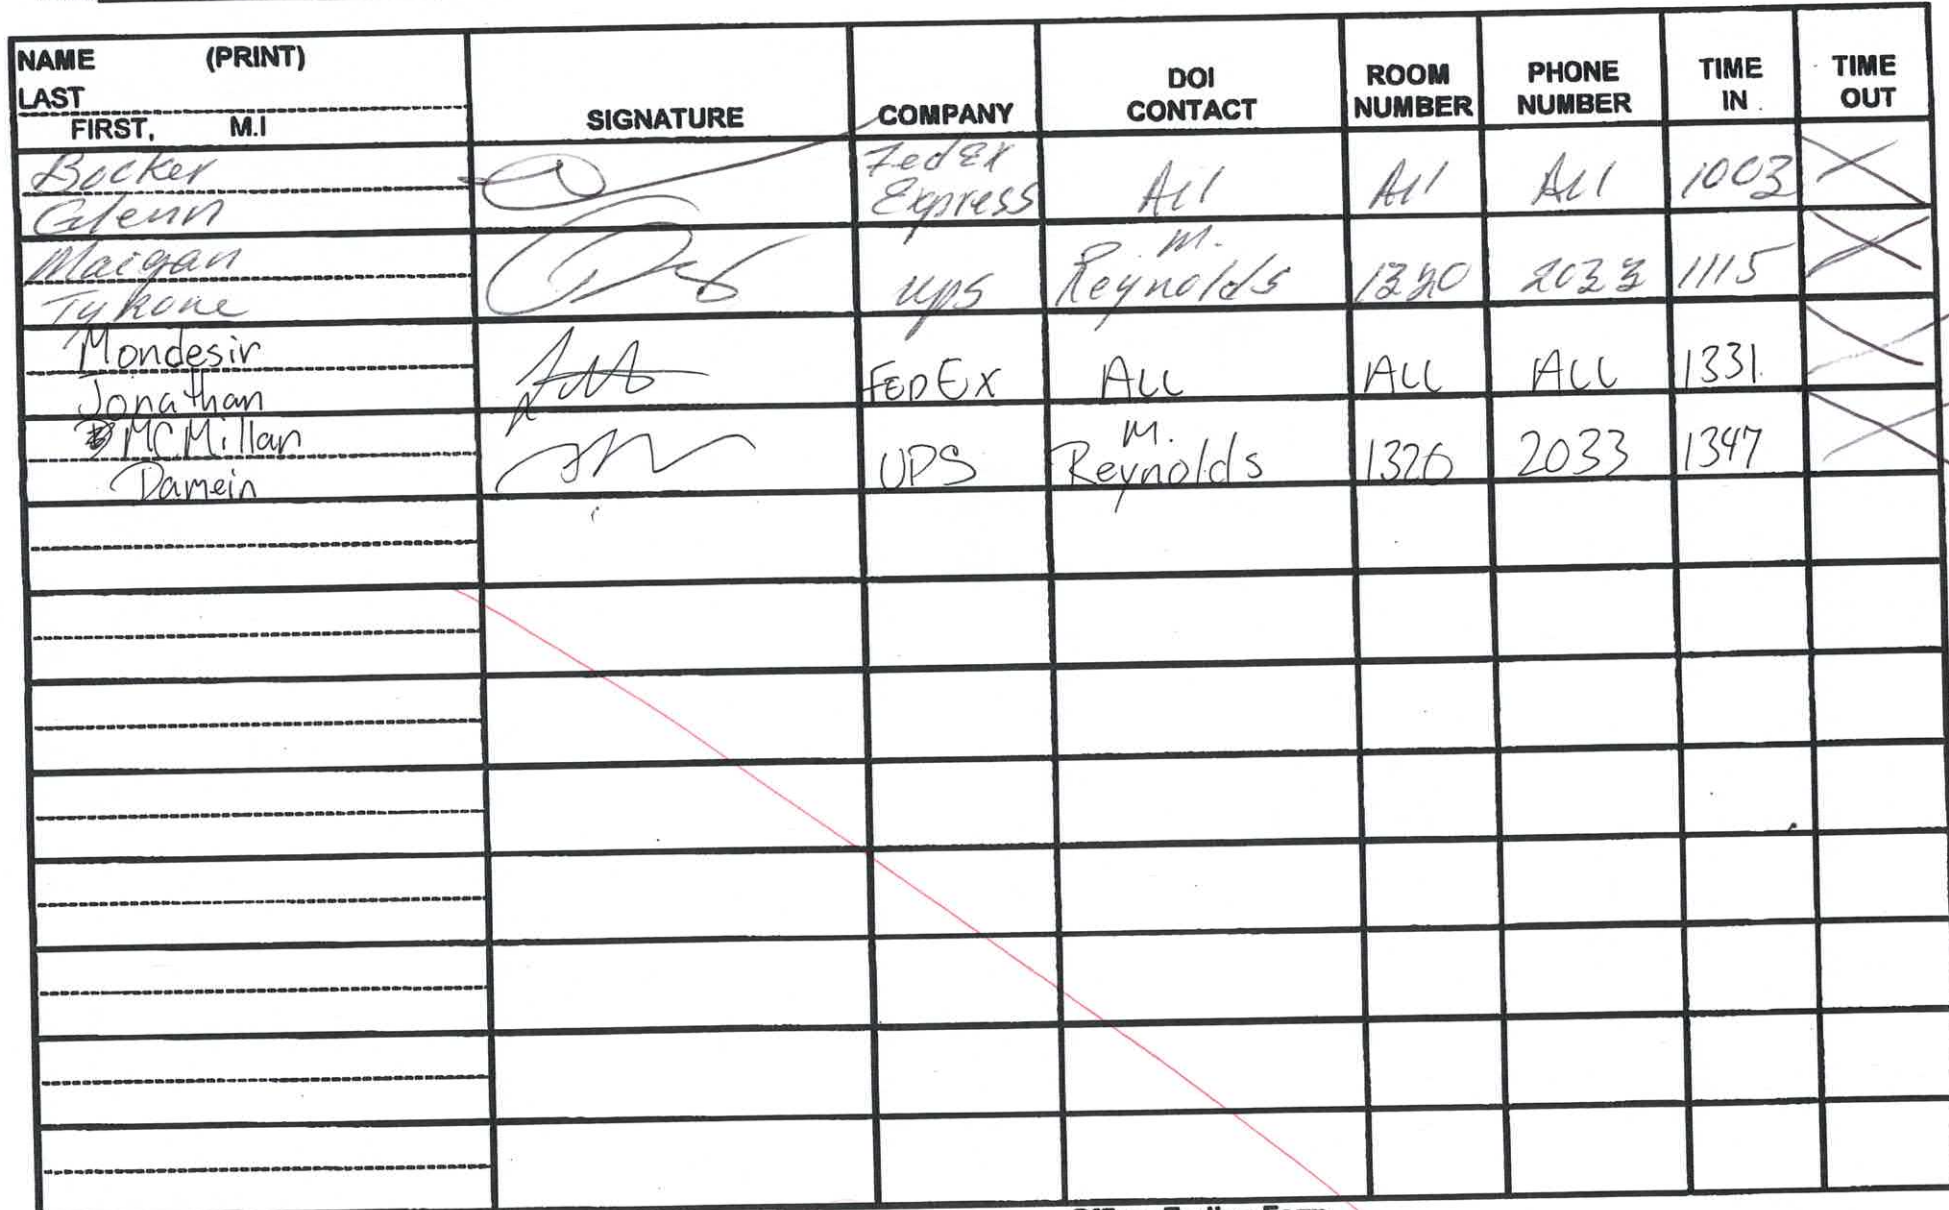 NAME (PRINT)
LAST
FIRST, M.I
SIGNATURE
COMPANY
DOI
CONTACT
ROOM
NUMBER
PHONE
NUMBER
TIME
IN
TIME
OUT
Bocker
Glenn
FedEx
Express
All
All
All
1003
Maigan
Tykone
ups
M.
Reynolds
1320
2033
1115
Mondesir
Jonathan
FEDEX
ALL
ALL
ALL
1331
McMillan
Damein
UPS
M.
Reynolds
1320
2033
1347